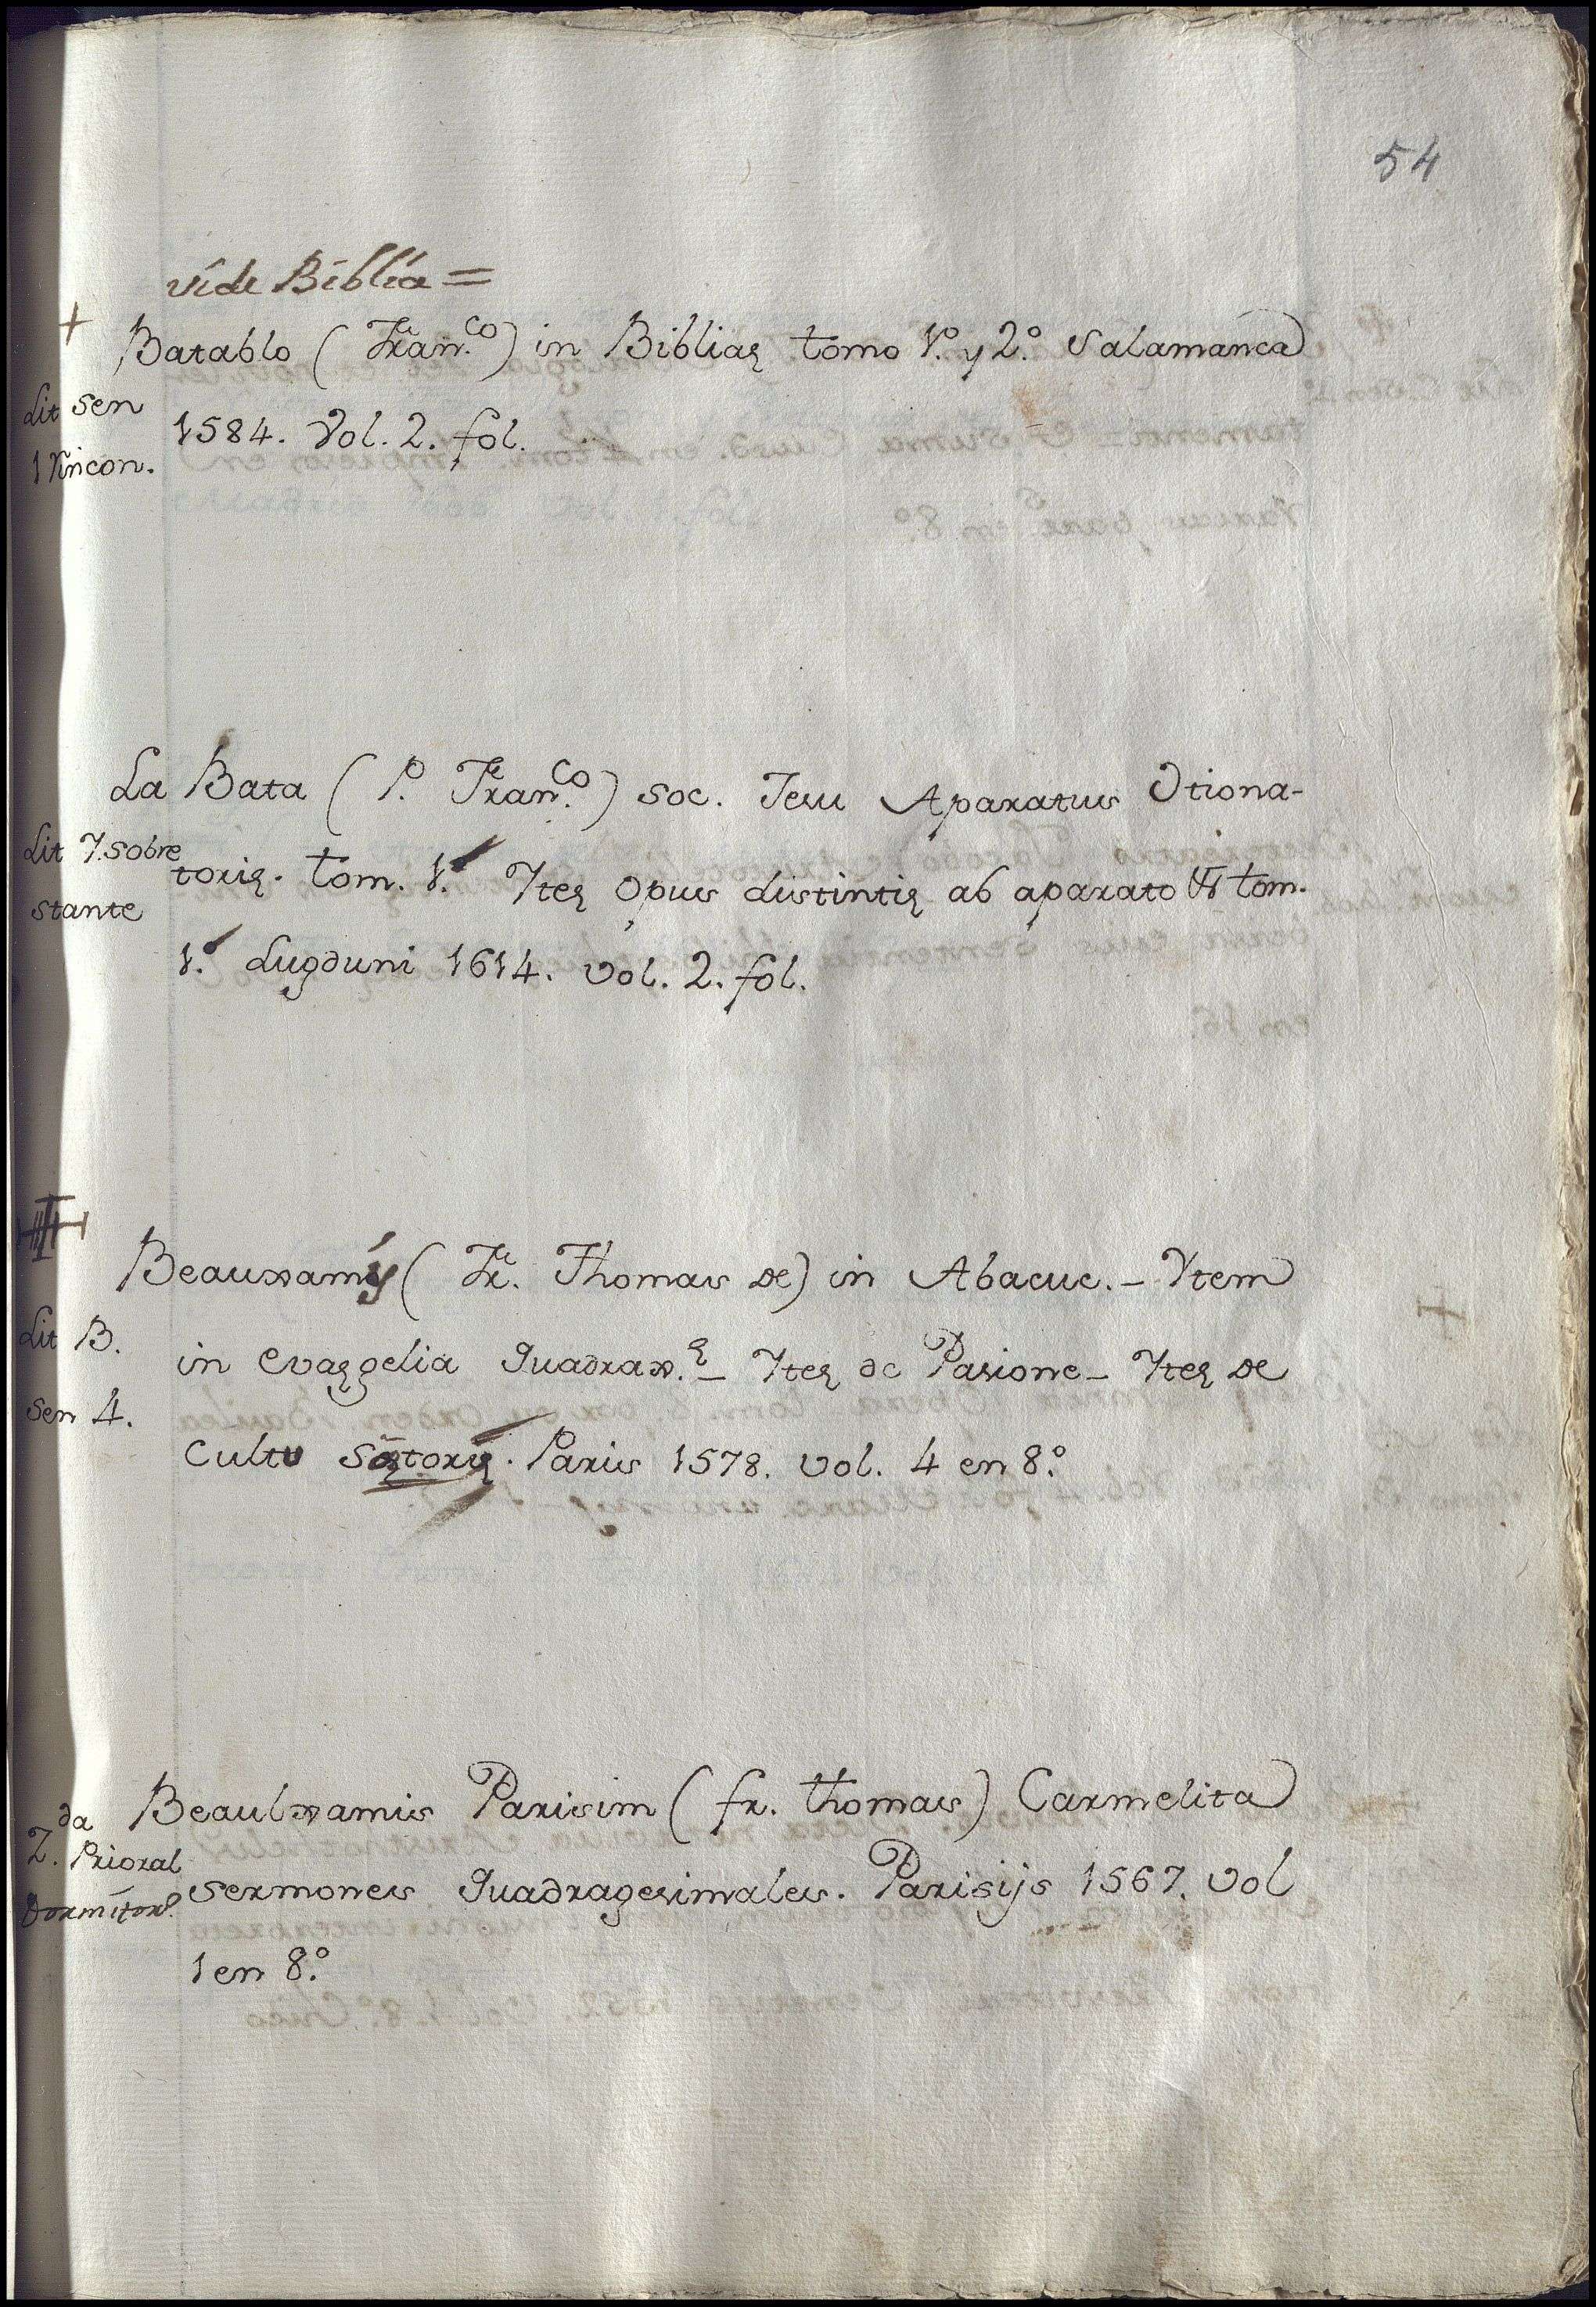 54
vide Biblia =
+ Batablo (Fran.co) in Bibliaȩ tomo 1.º y 2.º Salamanca
Lit Sen
1584. Vol. 2. fol.
1 Rincon.
La Bata (P. Fran.co) soc. Jesu Aparatus Otiona-
Lit 7. sobre
torię. tom. 1.º Iteȩ opus distintię ab aparato tom.
stante
1.º Lugduni 1614. vol. 2. fol.
Beauxamy (Fr. Thomas de) in Abacuc. - Item
Lit B.
in evaȩgelia quadrax. - Iteȩ de Pasione - Iteȩ de
sen 4.
cultu Paris 1578. vol. 4 en 8.º
Beaulxamis Parisim (fr. thomas) Carmelita
2.da Prioral
sermones quadragesimales. Parisijs 1567. vol
Dormitor.
1 en 8.º